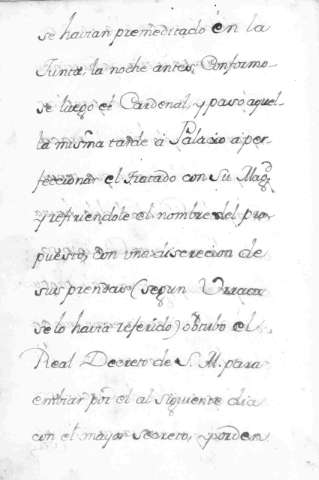 se havian premeditado en la
Junta la noche antes, Conformo-
se luego el Cardenal, y pasó aquel-
la misma tarde á Palacio a per-
feccionar el Tratado con Su Magd.
y refiriendole el nombre del pro-
puesto, con una discrecion de
sus prendas (segun Urraca
se lo havia referido) obtubo el
Real Decreto de S. M. para
embiar por él al siguiente dia
con el mayor secreto, y orden